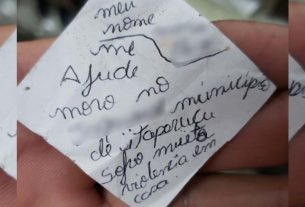 meu
nome
me
Ajude
moro no
municipio
de itaporucu
sofro muita
violencia em
casa